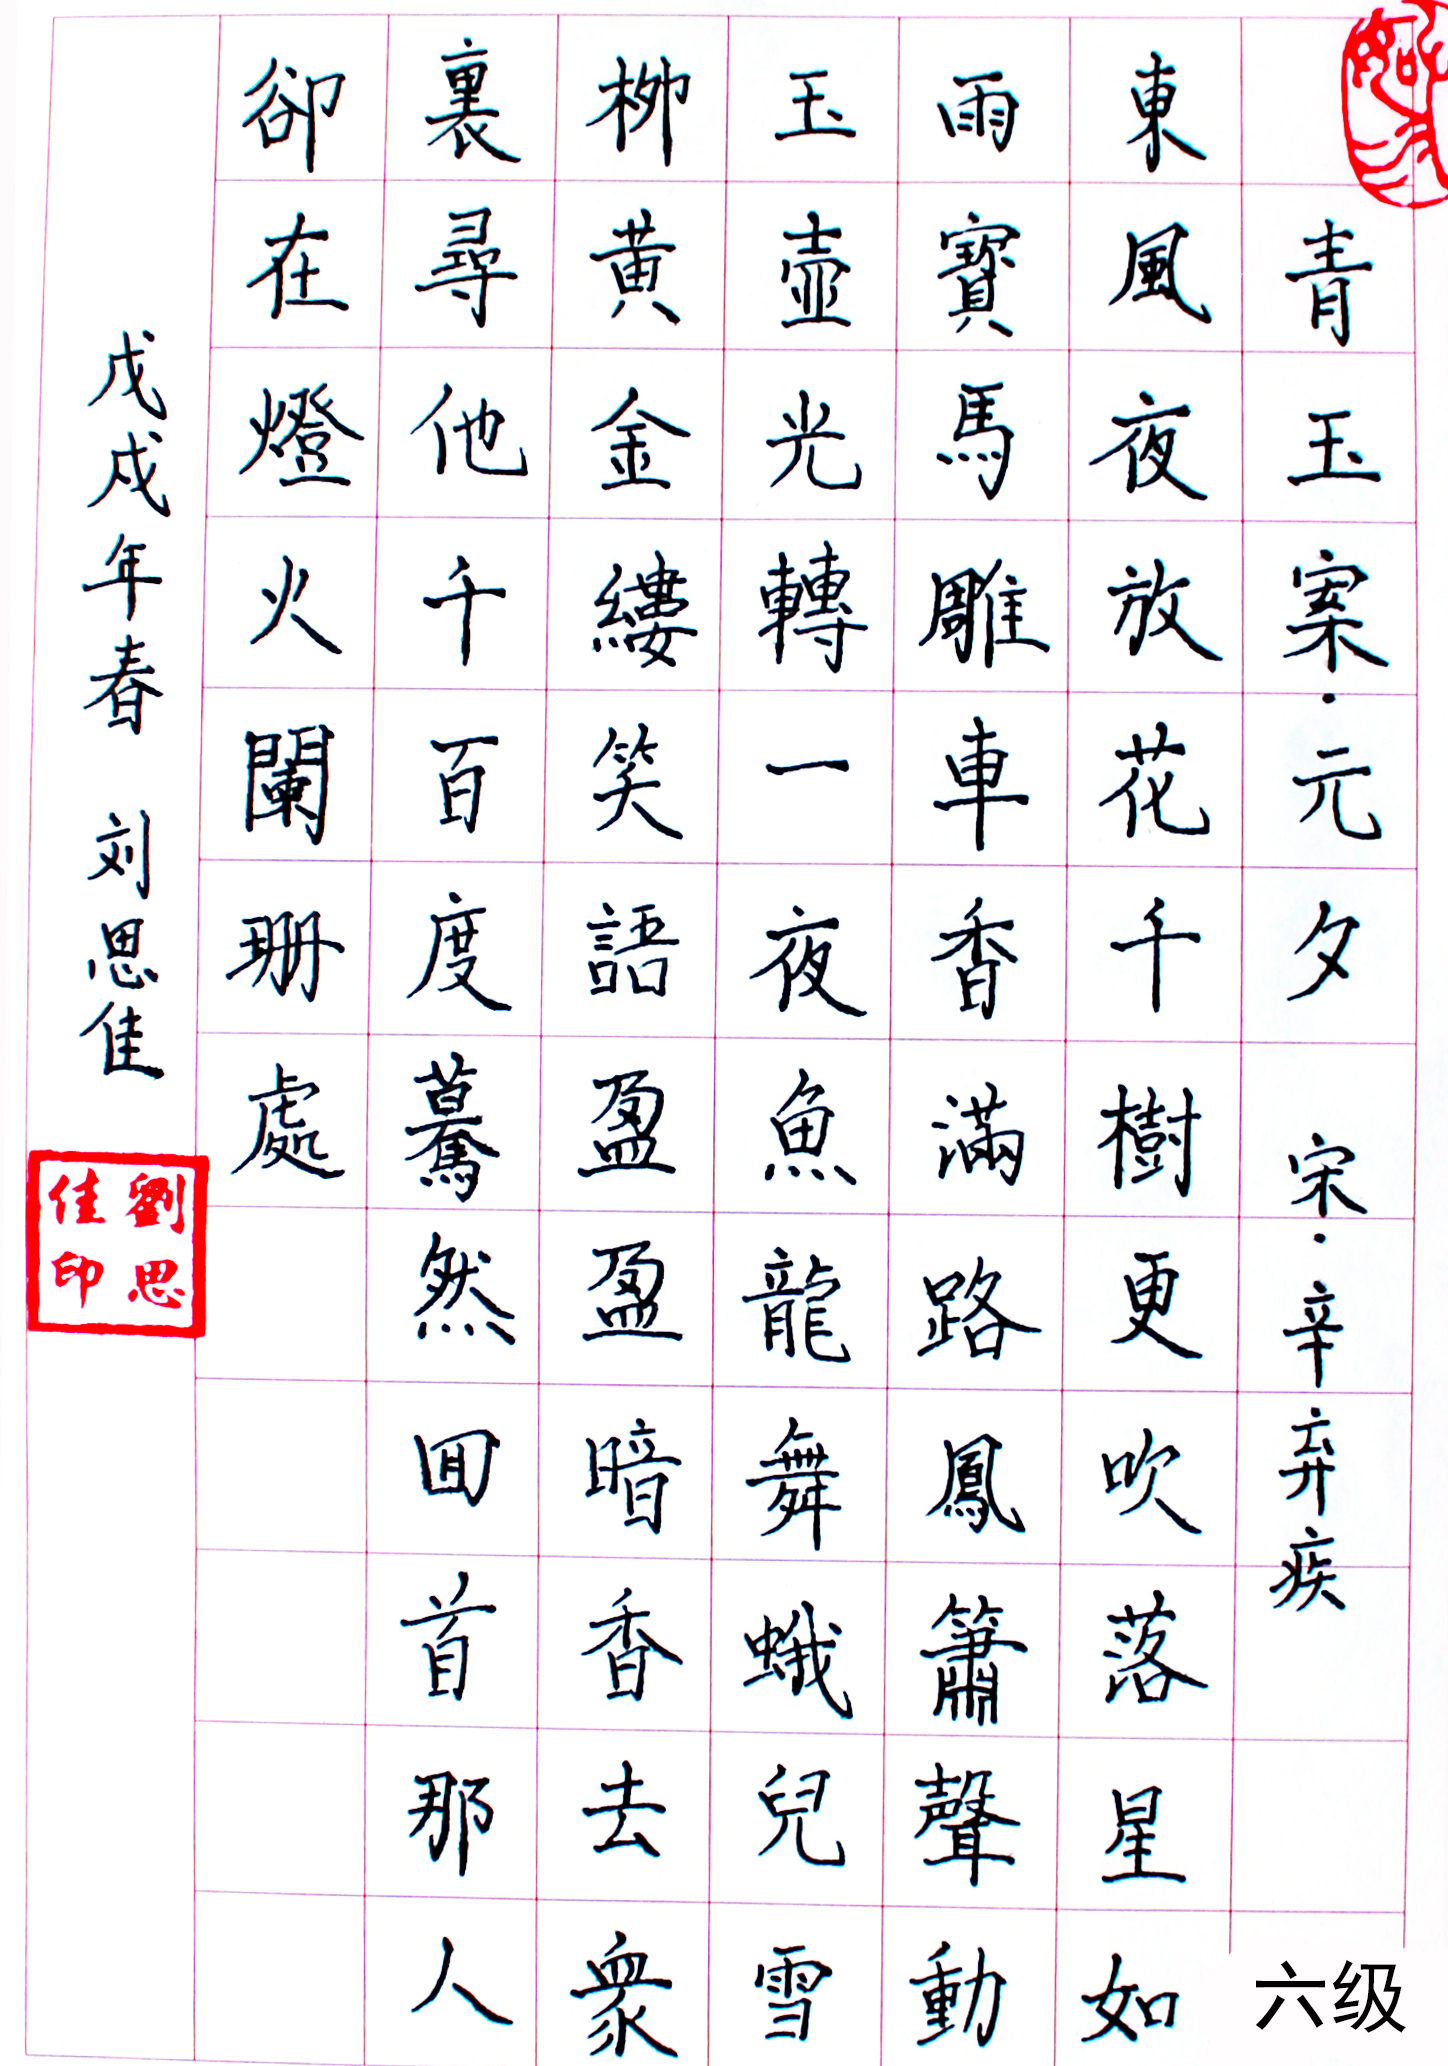 青玉案·元夕 宋·辛弃疾
東風夜放花千樹更吹落星如
雨寶馬雕車香滿路鳳簫聲動
玉壺光轉一夜魚龍舞蛾兒雪
柳黄金縷笑語盈盈暗香去衆
裏尋他千百度驀然囬首那人
卻在燈火闌珊處
戊戌年春 刘思佳
劉思佳印
六级